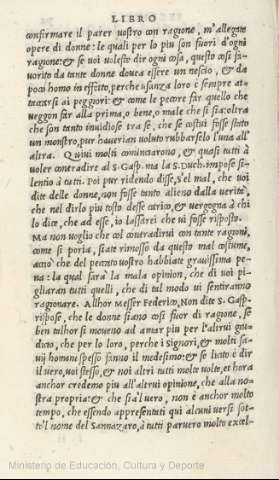 LIBRO
confirmare il parer uostro con ragione, m'allegate
opere di donne: le quali per lo piu son fuori d'ogni
ragione: & se uoi uoleste dir ogni cosa, questo cosi fa-
uorito da tante donne douea essere un nescio, & da
poco homo in effetto, perche usanza loro è sempre at-
taccarsi ai peggiori: & come le pecore far quello che
ueggon far alla prima, o bene, o male che si sia: oltra
che son tanto inuidiose tra se, che se costui fosse stato
un monstro, pur hauerian uoluto rubbarselo l'una all'
altra. Quiui molti cominciarono, & quasi tutti à
uoler contradire al S. Gasp. ma la S. Duch. impose si-
lentio à tutti. Poi pur ridendo disse, s'el mal, che uoi
dite delle donne, non fosse tanto alieno dalla uerità,
che nel dirlo piu tosto desse carico, & uergogna à chi
lo dice, che ad esse, io lassarei che ui fosse risposto.
Ma non uoglio che col contradirui con tante ragioni,
come si poria, siate rimosso da questo mal costume,
acciò che del peccato uostro habbiate grauissima pe-
na: la qual sarà la mala opinion, che di uoi pi-
gliaran tutti quelli, che di tal modo ui sentiranno
ragionare. Allhor Messer Federico, Non dite S. Gasp.
rispose, che le donne siano così fuor di ragione, se
ben talhor si moueno ad amar piu per l'altrui giu-
dicio, che per lo loro, perche i Signori, & molti sa-
uij homini spesso fanno il medesimo: & se licito è dir
il uero, uoi stesso, & noi altri tutti molte uolte, et hora
anchor credemo piu all'altrui opinione, che alla no-
stra propria: & che sia'l uero, non è anchor molto
tempo, che essendo appresentati qui alcuni uersi sot-
to'l nome del Sannazaro, à tutti paruero molto excel-
Ministerio de Educación, Cultura y Deporte